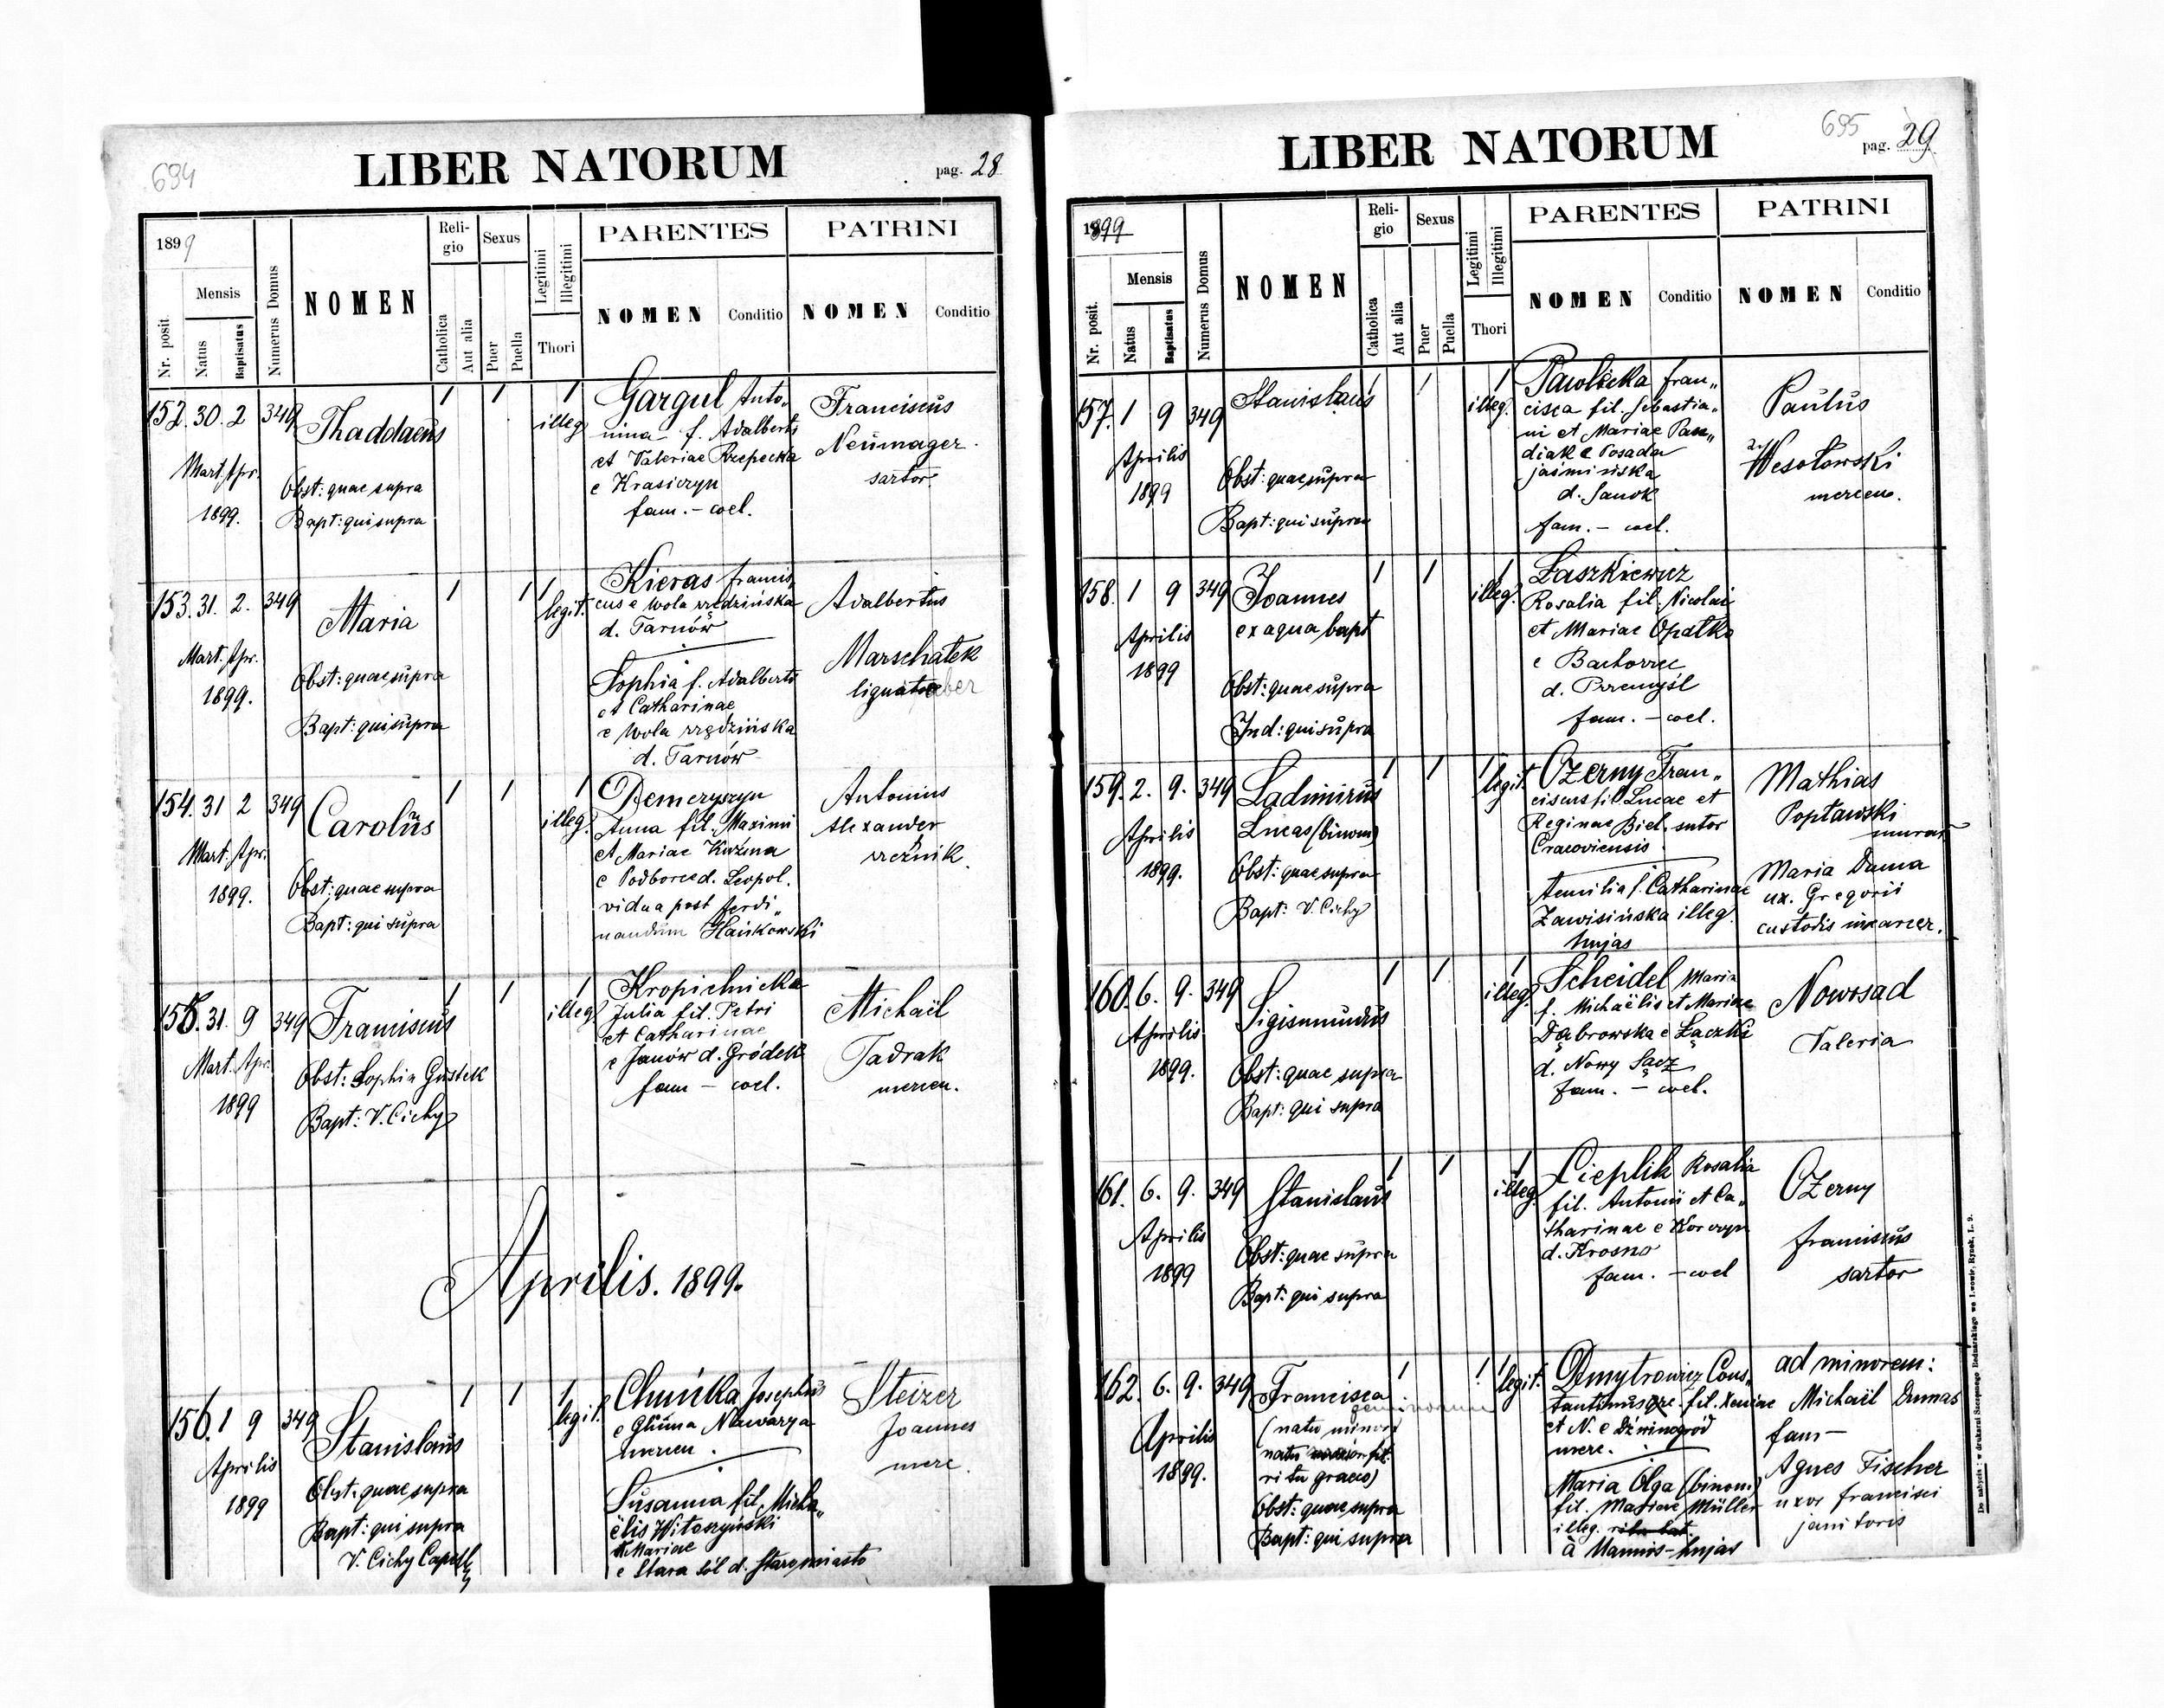 694
LIBER NATORUM
pag. 28
1899
Nr. posit.
Mensis
Natus
Baptisatus
Numerus Domus
NOMEN
Reli-
gio
Catholica
Aut alia
Sexus
Puer
Puella
Legitimi
Illegitimi
Thori
PARENTES
NOMEN
Conditio
PATRINI
NOMEN
Conditio
152. 30. 2 349
Mart. Apr.
1899.
Thaddaeus
Obst: quae supra
Bapt: qui supra
1 1 1
illeg.
Gargul Anto„
nina f. Adalberti
et Valeriae Rzepecka
e Krasiczyn
fam. – coel.
Franciscus
Neumager.
sartor.
153. 31. 2. 349
Mart. Apr.
1899.
Maria
Obst: quae supra
Bapt: qui supra
1 1 1
legit.
Kieras Francis„
cus e Wola rzędzińska
d. Tarnów
Sophia f. Adalberti
et Catharinae
e Wola rzędzińska
d. Tarnów
Adalbertus
Marschałek
154. 31 2 349
Mart. Apr.
1899.
Carolus
Obst: quae supra
Bapt: qui supra
1 1 1
illeg.
Demczyszyn
Anna fil. Maximi
et Mariae Kuźma
e Podborce d. Leopol.
vidua post Ferdi„
nandum Hańkowski
Antonius
Alexander
rzeźnik.
155. 31. 9 349
Mart. Apr.
1899
Franciscus
Obst: Sophia Gustek
Bapt: V. Cichy
1 1 1
illeg.
Kropielnicka
Julia fil. Petri
et Catharinae
e Janów d. Gródek
fam – coel.
Michaël
Tadrak
mercen.
Aprilis. 1899.
156. 1 9 349
Aprilis
1899
Stanislaus
Obst: quae supra
Bapt: qui supra
V. Cichy Capell
1 1 1
legit.
Chmilka Josephus
e Glinna Nawarya
mercen.
Susanna fil. Micha„
ëlis Witoszyński
et Mariae
e Stara sól d. Staromiasto
Steizer
Joannes
merc.
695
LIBER NATORUM
pag. 29
1899
Nr. posit.
Mensis
Natus
Baptisatus
Numerus Domus
NOMEN
Reli-
gio
Catholica
Aut alia
Sexus
Puer
Puella
Legitimi
Illegitimi
Thori
PARENTES
NOMEN
Conditio
PATRINI
NOMEN
Conditio
157. 1 9 349
Aprilis
1899
Stanislaus
Obst: quae supra
Bapt: qui supra
1 1 1
illeg.
Pawlicka Fran„
cisca fil. Sebastia„
ni et Mariae Pan„
diak e Posada
jaśmińska
d. Sanok
fam. – coel.
Paulus
Wesołowski
mercen.
158. 1 9 349
Aprilis
1899
Joannes
ex aqua bapt
Obst: quae supra
Ind: qui supra
1 1 1
illeg.
Łaszkiewicz
Rosalia fil. Nicolai
et Mariae Opałko
e Bachorzec
d. Przemyśl
fam. – coel.
159. 2. 9. 349
Aprilis
1899.
Ladimirus
Lucas (binom)
Obst: quae supra
Bapt: V. Cichy
1 1 1
legit.
Czerny Fran„
ciscus fil Lucae et
Reginae Biel, sutor
Cracoviensis.
Aemilia f. Catharinae
Zawisińska illeg.
hujas
Mathias
Popławski
murar
Maria Duma
ux. Gregorii
custodis incarcer.
160. 6. 9. 349
Aprilis
1899.
Sigismundus
Obst: quae supra
Bapt: qui supra
1 1 1
illeg.
Scheidel Maria
f. Michaëlis et Mariae
Dąbrowska e Łączki
d. Nowy Sącz
fam. – coel.
Nowosad
Valeria
161. 6. 9. 349
Aprilis
1899
Stanislaus
Obst: quae supra
Bapt: qui supra
1 1 1
illeg.
Cieplik Rosalia
fil. Antonii et Ca„
tharinae e Korczyn
d. Krosno
fam. – coel
Czerny
Franciscus
sartor
162. 6. 9. 349
Aprilis
1899.
Francisca
geminorum
(natu minor)
natu
ritu graeco)
Obst: quae supra
Bapt: qui supra
1 1 1
legit.
Dmytrowicz Cons„
tantinus gre. fil. Xeniae
et N. e Dźwinogród
merc.
Maria Olga (binom)
fil. Mariae Müller
illeg. ritu lat.
à Mannis-hujas
ad minorem:
Michaël Dumas
fam –
Agnes Fischer
uxor Francisci
janitoris
Do nabycia: w drukarni Szczęsnego Bednarskiego we Lwowie, Rynek, L. 9.